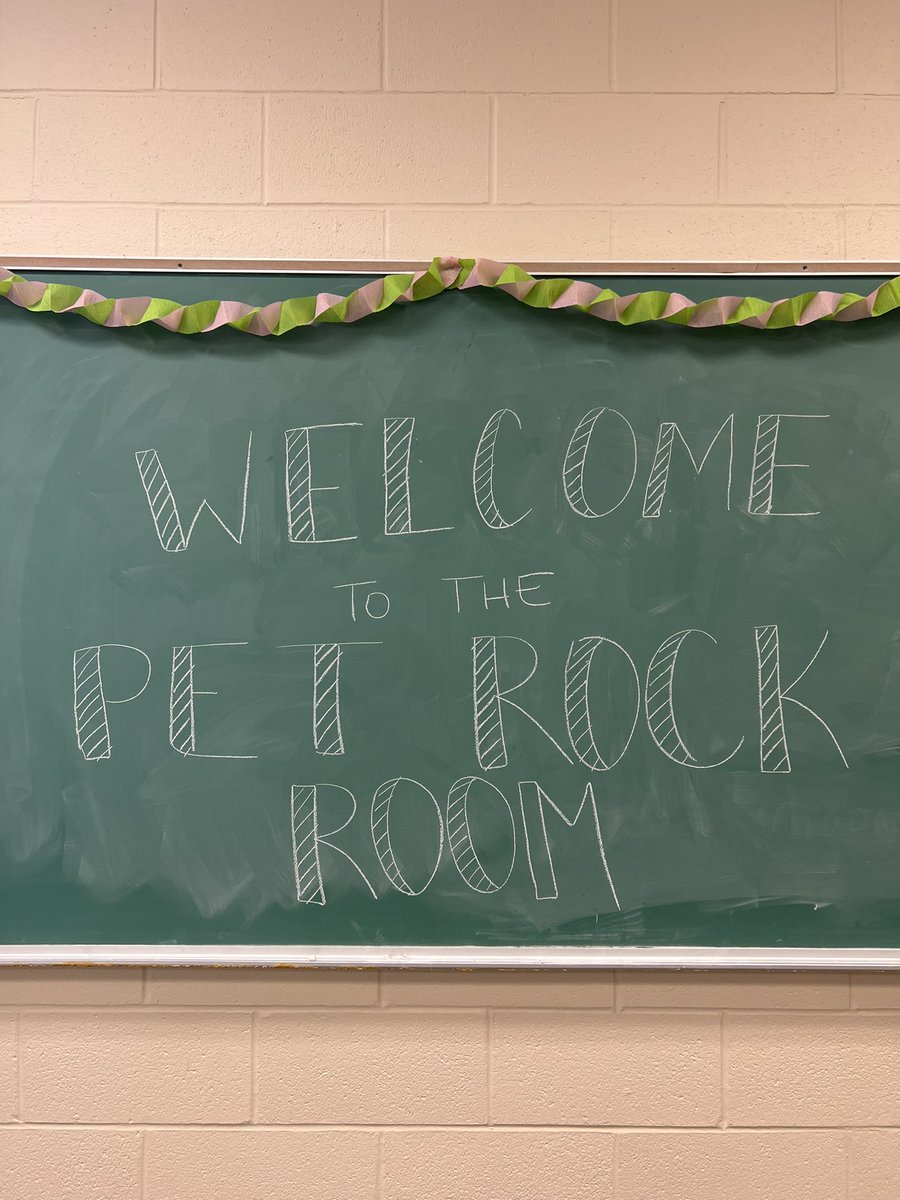 WELCOME
TO THE
PET ROCK
ROOM